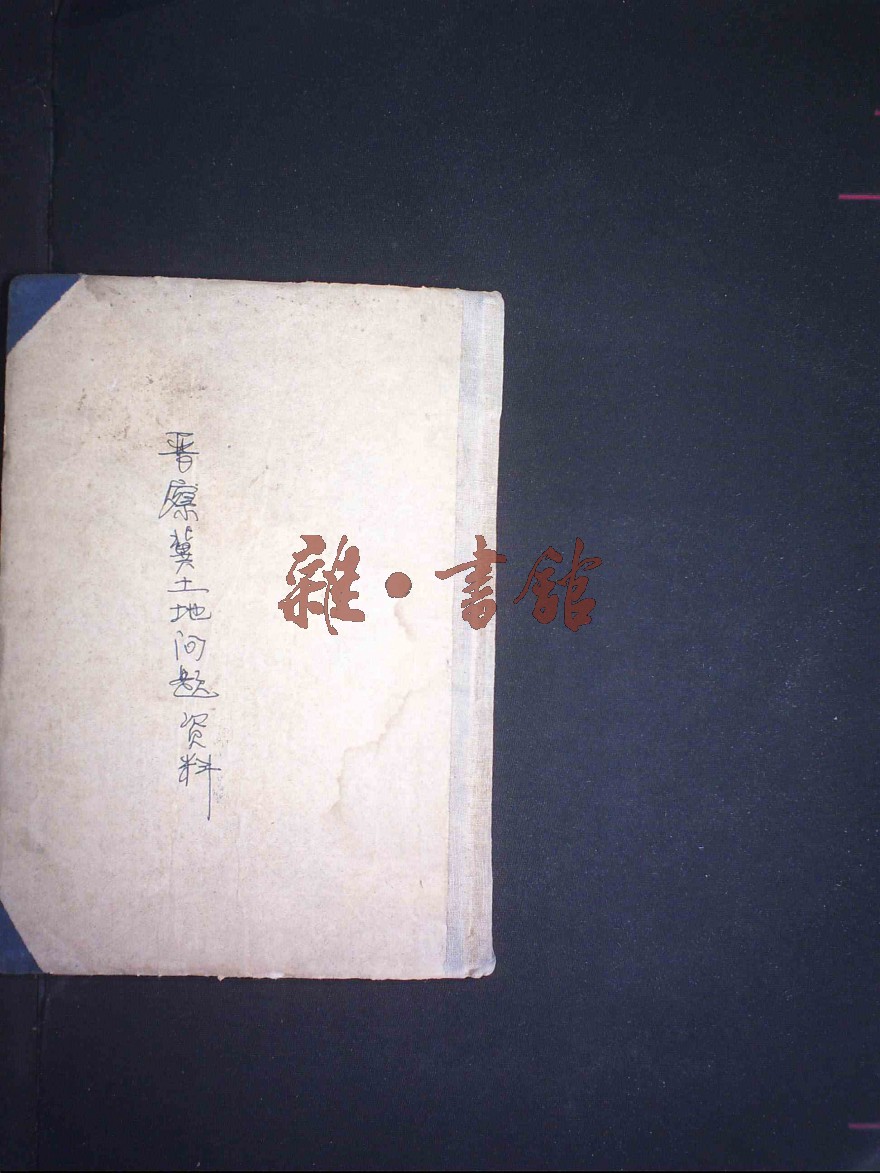 晋察冀土地问题资料
雜·書館